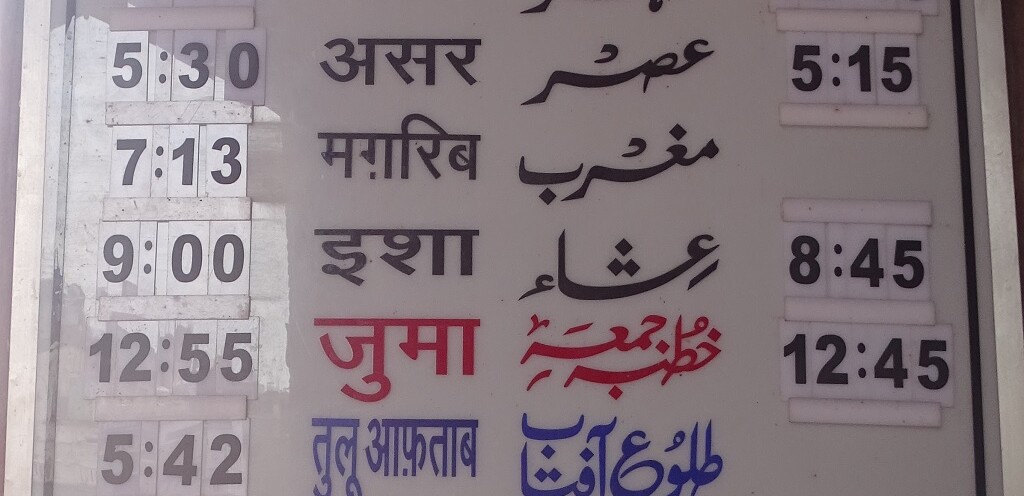 5:30 असर عصر 5:15
7:13 मग़रिब مغرب
9:00 इशा عشاء 8:45
12:55 जुमा خطبہ جمعہ 12:45
5:42 तुलू आफ़ताब طلوع آفتاب